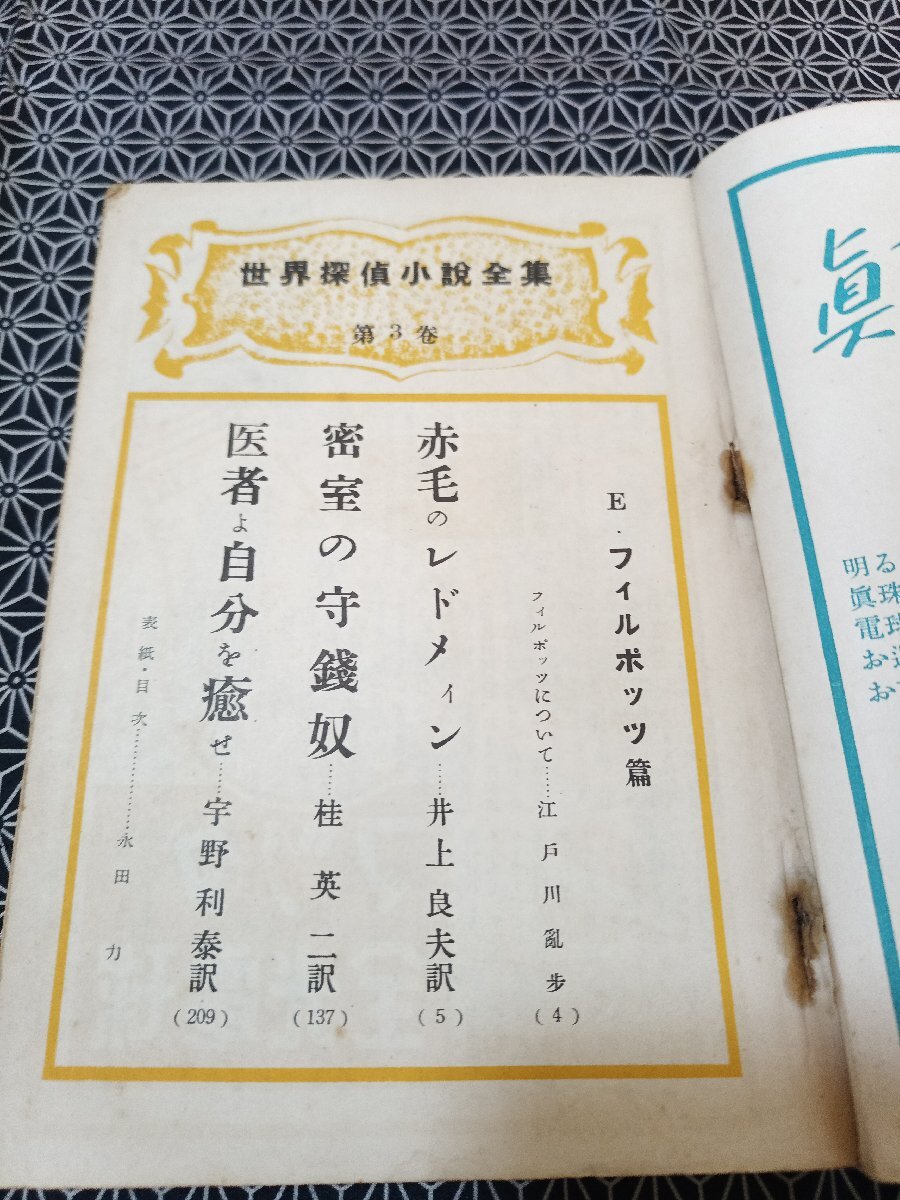 世界探偵小說全集
第3卷
E・フィルポッツ篇
フィルポッツについて……江戶川亂步(4)
赤毛のレドメイン……井上良夫訳(5)
密室の守錢奴……桂英二訳(137)
医者よ自分を癒せ……宇野利泰訳(209)
表紙・目次………………永田力
眞
明る
眞珠
電球
お
お